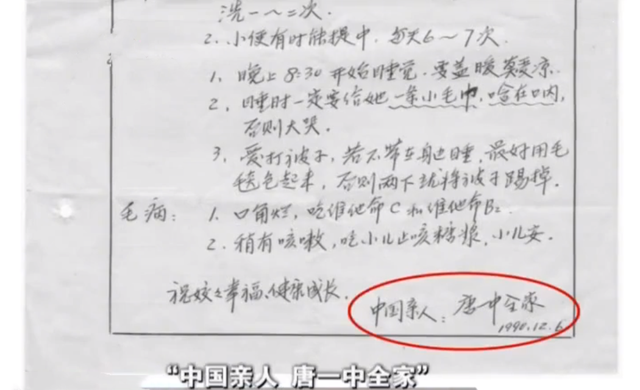 洗一~二次.
2. 小便有时能提中. 每天6~7次.
1. 晚上8:30开始睡觉. 要盖暖莫受凉.
2. 睡时一定要给她一条小毛巾, 啥在口内,
否则大哭.
3. 爱打被子, 若不带在身边睡. 最好用毛
毯包起来, 否则两下就将被子踢掉.
毛病: 1. 口角烂, 吃维他命C和维他命B₂
2. 稍有咳嗽, 吃小儿止咳糖浆, 小儿安.
祝姣姣幸福、健康成长.
中国亲人: 唐一中全家
1990.12.6
“中国亲人 唐一中全家”